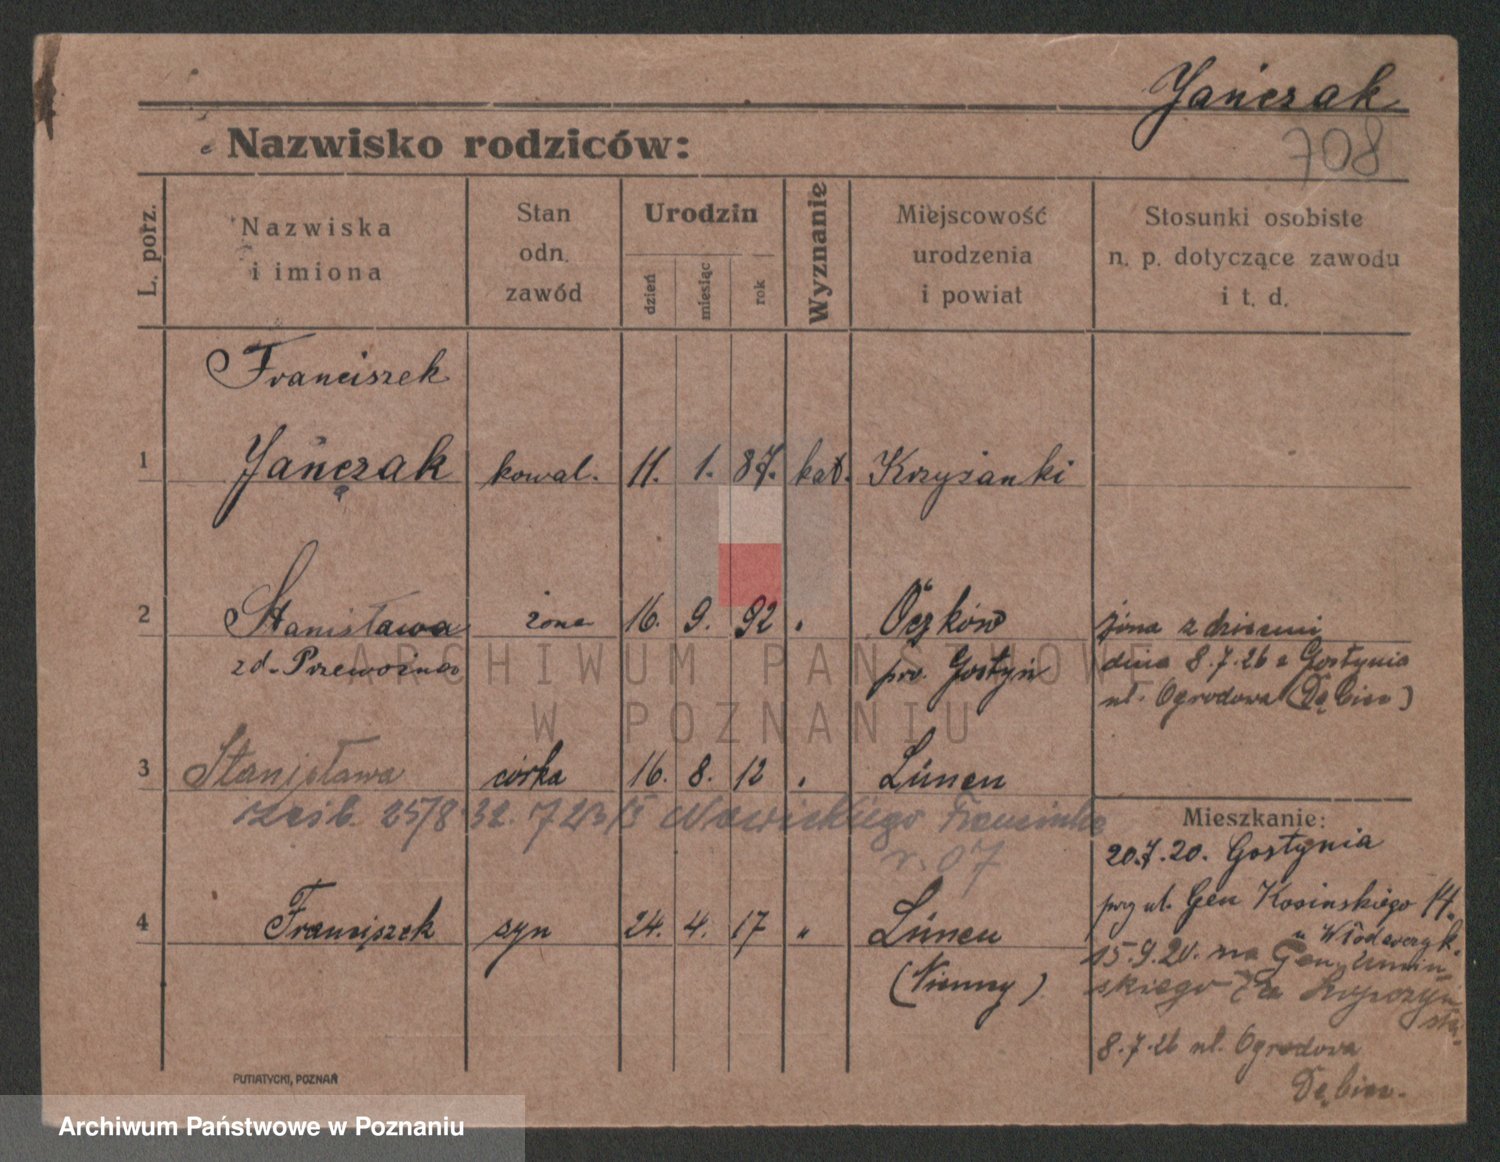 Jańczak
708
Nazwisko rodziców:
L. porz.
Nazwiska
i imiona
Stan
odn.
zawód
Urodzin
dzień
miesiąc
rok
Wyznanie
Miejscowość
urodzenia
i powiat
Stosunki osobiste
n. p. dotyczące zawodu
i t. d.
Franciszek
1 Jańczak kowal. 11. 1. 87. kat. Krzyżanki
2 Stanisława żona 16. 9. 92 " Oczków
zd. Przewoźna
pow. Gostyń
żona z dziećmi
dnia 8.7.26 z Gostynia
ul. Ogrodowa (Dębiec)
ARCHIWUM PAŃSTWOWE
W POZNANIU
3 Stanisława córka 16. 8. 12 " Lünen
25/8 32. Nawickiego Franciszka
r. 07
4 Franciszek syn 24. 4. 17 " Lünen
(Niemcy)
Mieszkanie:
20.7.20. Gostynia
przy ul. Gen Kosinskiego 14.
u
15.9.20. na Gen. Umiń-
skiego 7
8.7.26 ul. Ogrodowa
Dębiec.
PUTIATYCKI, POZNAŃ
Archiwum Państwowe w Poznaniu